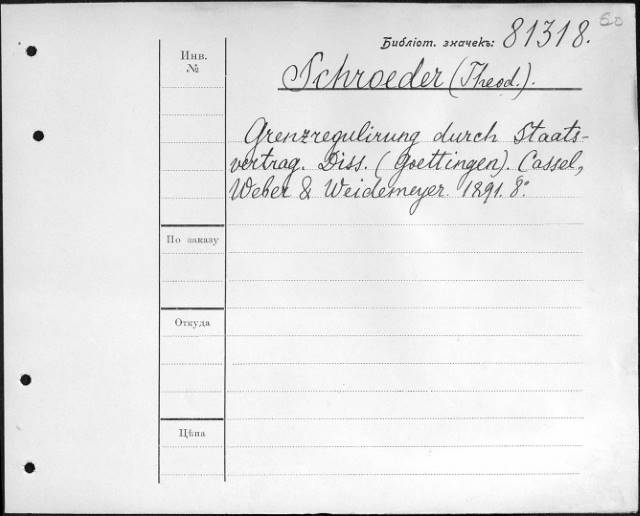 50
Библіот. значекъ: 81318.
Инв.
№
Schroeder (Theod.).
Grenzregulirung durch Staats-
vertrag. Diss. (Goettingen). Cassel,
Weber & Weidemeyer. 1891. 8°.
По заказу
Откуда
Цѣна